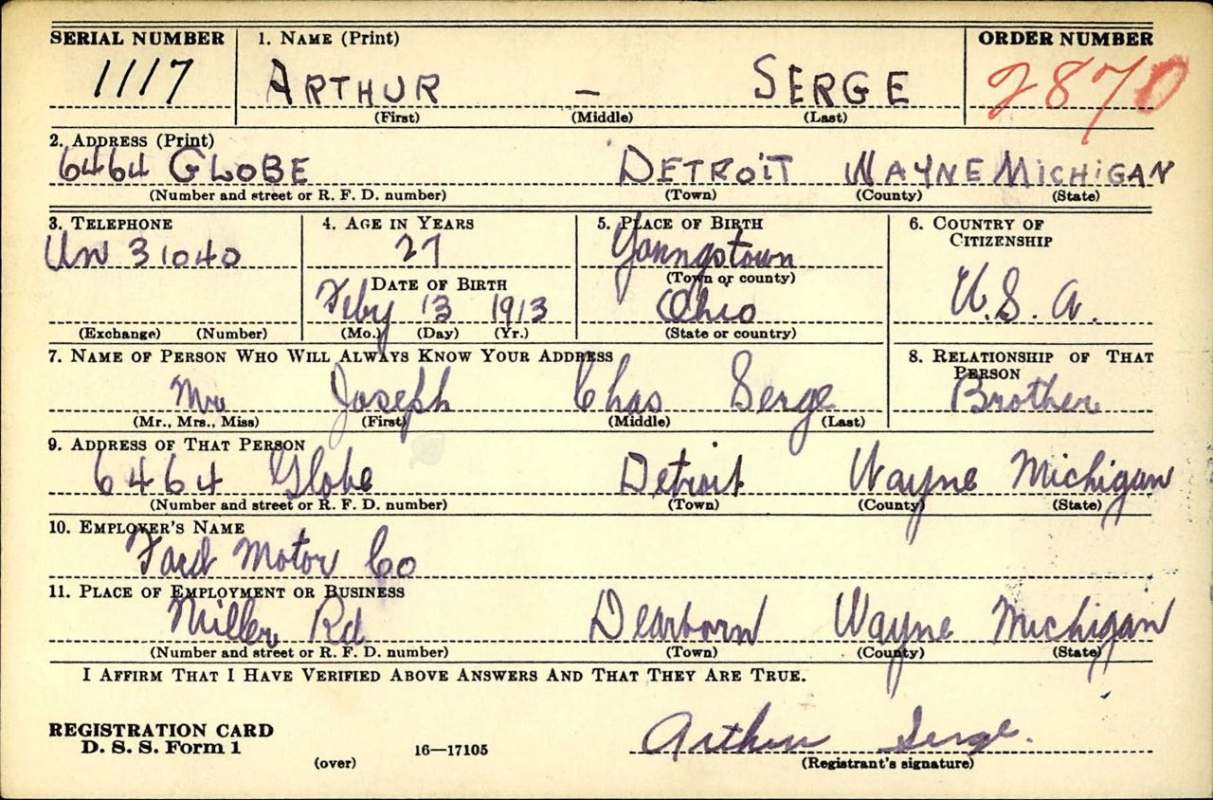 SERIAL NUMBER 1. NAME (Print) ORDER NUMBER
1117 ARTHUR – SERGE 2870
(First) (Middle) (Last)
2. ADDRESS (Print)
6464 GLOBE DETROIT WAYNE MICHIGAN
(Number and street or R. F. D. number) (Town) (County) (State)
3. TELEPHONE 4. AGE IN YEARS 5. PLACE OF BIRTH 6. COUNTRY OF CITIZENSHIP
Un 31040 27 Youngstown
(Town or county)
DATE OF BIRTH U.S.A.
Feby 13 1913 Ohio
(Exchange) (Number) (Mo.) (Day) (Yr.) (State or country)
7. NAME OF PERSON WHO WILL ALWAYS KNOW YOUR ADDRESS 8. RELATIONSHIP OF THAT PERSON
Mr Joseph Chas Serge Brother
(Mr., Mrs., Miss) (First) (Middle) (Last)
9. ADDRESS OF THAT PERSON
6464 Globe Detroit Wayne Michigan
(Number and street or R. F. D. number) (Town) (County) (State)
10. EMPLOYER'S NAME
Ford Motor Co
11. PLACE OF EMPLOYMENT OR BUSINESS
Miller Rd Dearborn Wayne Michigan
(Number and street or R. F. D. number) (Town) (County) (State)
I AFFIRM THAT I HAVE VERIFIED ABOVE ANSWERS AND THAT THEY ARE TRUE.
REGISTRATION CARD Arthur Serge.
D. S. S. Form 1 16—17105
(over) (Registrant's signature)